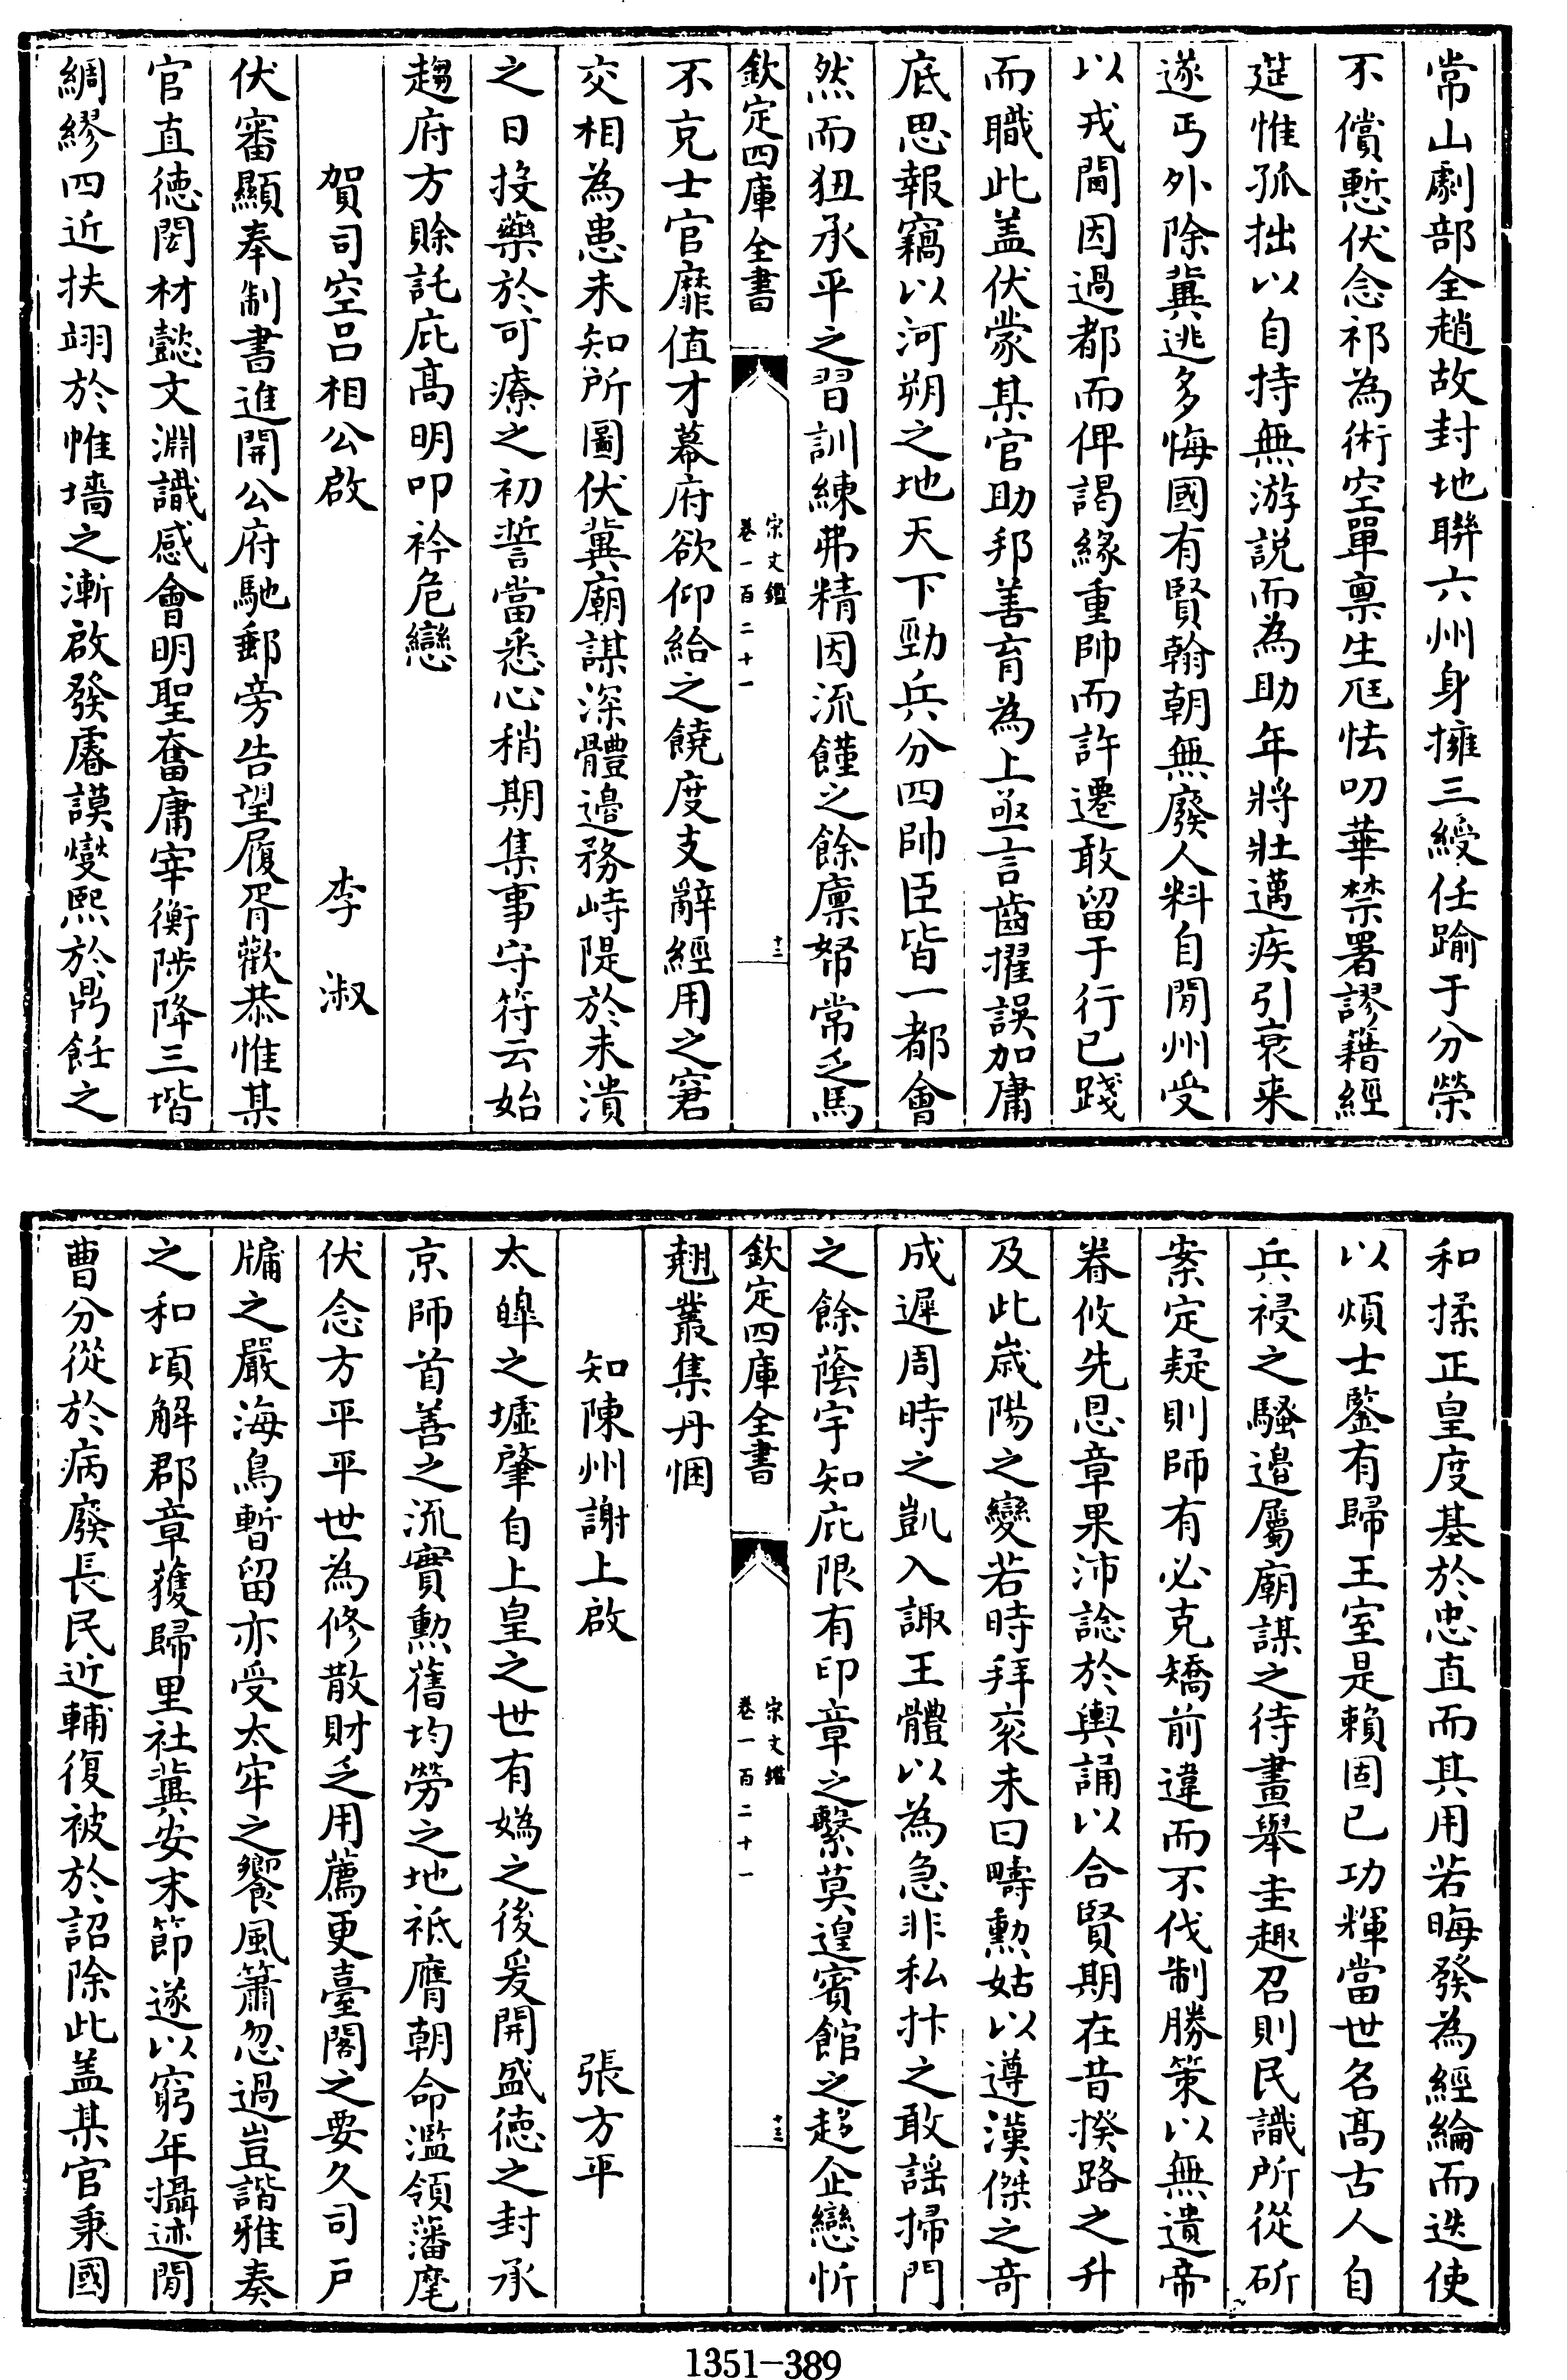 常山劇部全趙故封地聨六州身擁三綬任踰于分榮
不償慙伏念祁為術空單禀生尫怯叨華禁署謬籍經
筵惟孤拙以自持無游説而為助年將壯邁疾引衰来
遂丐外除冀逃多悔國有賢翰朝無廢人料自閒州受
以戎閫因過都而俾謁緣重帥而許遷敢留于行已踐
而職此盖伏蒙某官助邦善育為上亟言齒擢誤加庸
底思報竊以河朔之地天下勁兵分四帥臣皆一都會
然而狃承平之習訓練弗精因流饉之餘廪帑常乏馬
欽定四庫全書
宋文鑑
卷一百二十一
十三
不克士官靡值才幕府欲仰給之饒度支辭經用之窘
交相為患未知所圖伏冀廟謀深體邉務峙隄於未潰
之日投藥於可療之初誓當悉心稍期集事守符云始
趨府方賖託庇髙明叩衿危戀
賀司空吕相公啟　李淑
伏審顯奉制書進開公府馳郵旁告望履胥歡恭惟某
官直徳閎材懿文淵識感會明聖奮庸宰衡陟降三堦
綢繆四近扶翊於帷墻之漸啟發睿謨燮熙於鼎飪之
和揉正皇度基於忠直而其用若晦發為經綸而迭使
以煩士鑒有歸王室是賴固已功輝當世名髙古人自
兵祲之騷邉屬廟謀之待畫舉圭趣召則民識所從斫
案定疑則師有必克矯前違而不伐制勝策以無遺帝
眷攸先恩章果沛諗於輿誦以合賢期在昔揆路之升
及此歳陽之變若時拜衮未曰疇勲姑以遵漢傑之奇
成遲周時之凱入諏王體以為急非私抃之敢謡掃門
之餘蔭宇知庇限有印章之繫莫遑賓館之趍企戀忻
欽定四庫全書
宋文鑑
卷一百二十一
十三
翹叢集丹悃
知陳州謝上啟　張方平
太皥之墟肇自上皇之世有媯之後爰開盛徳之封承
京師首善之流實勲舊均勞之地祗膺朝命濫領藩麾
伏念方平平世為修散財乏用薦更臺閣之要久司戸
牖之嚴海鳥暫留亦受太牢之饗風簫忽過豈諧雅奏
之和頃解郡章獲歸里社冀安末節遂以窮年攝迹閒
曹分從於病廢長民近輔復被於詔除此盖某官秉國
1351-389